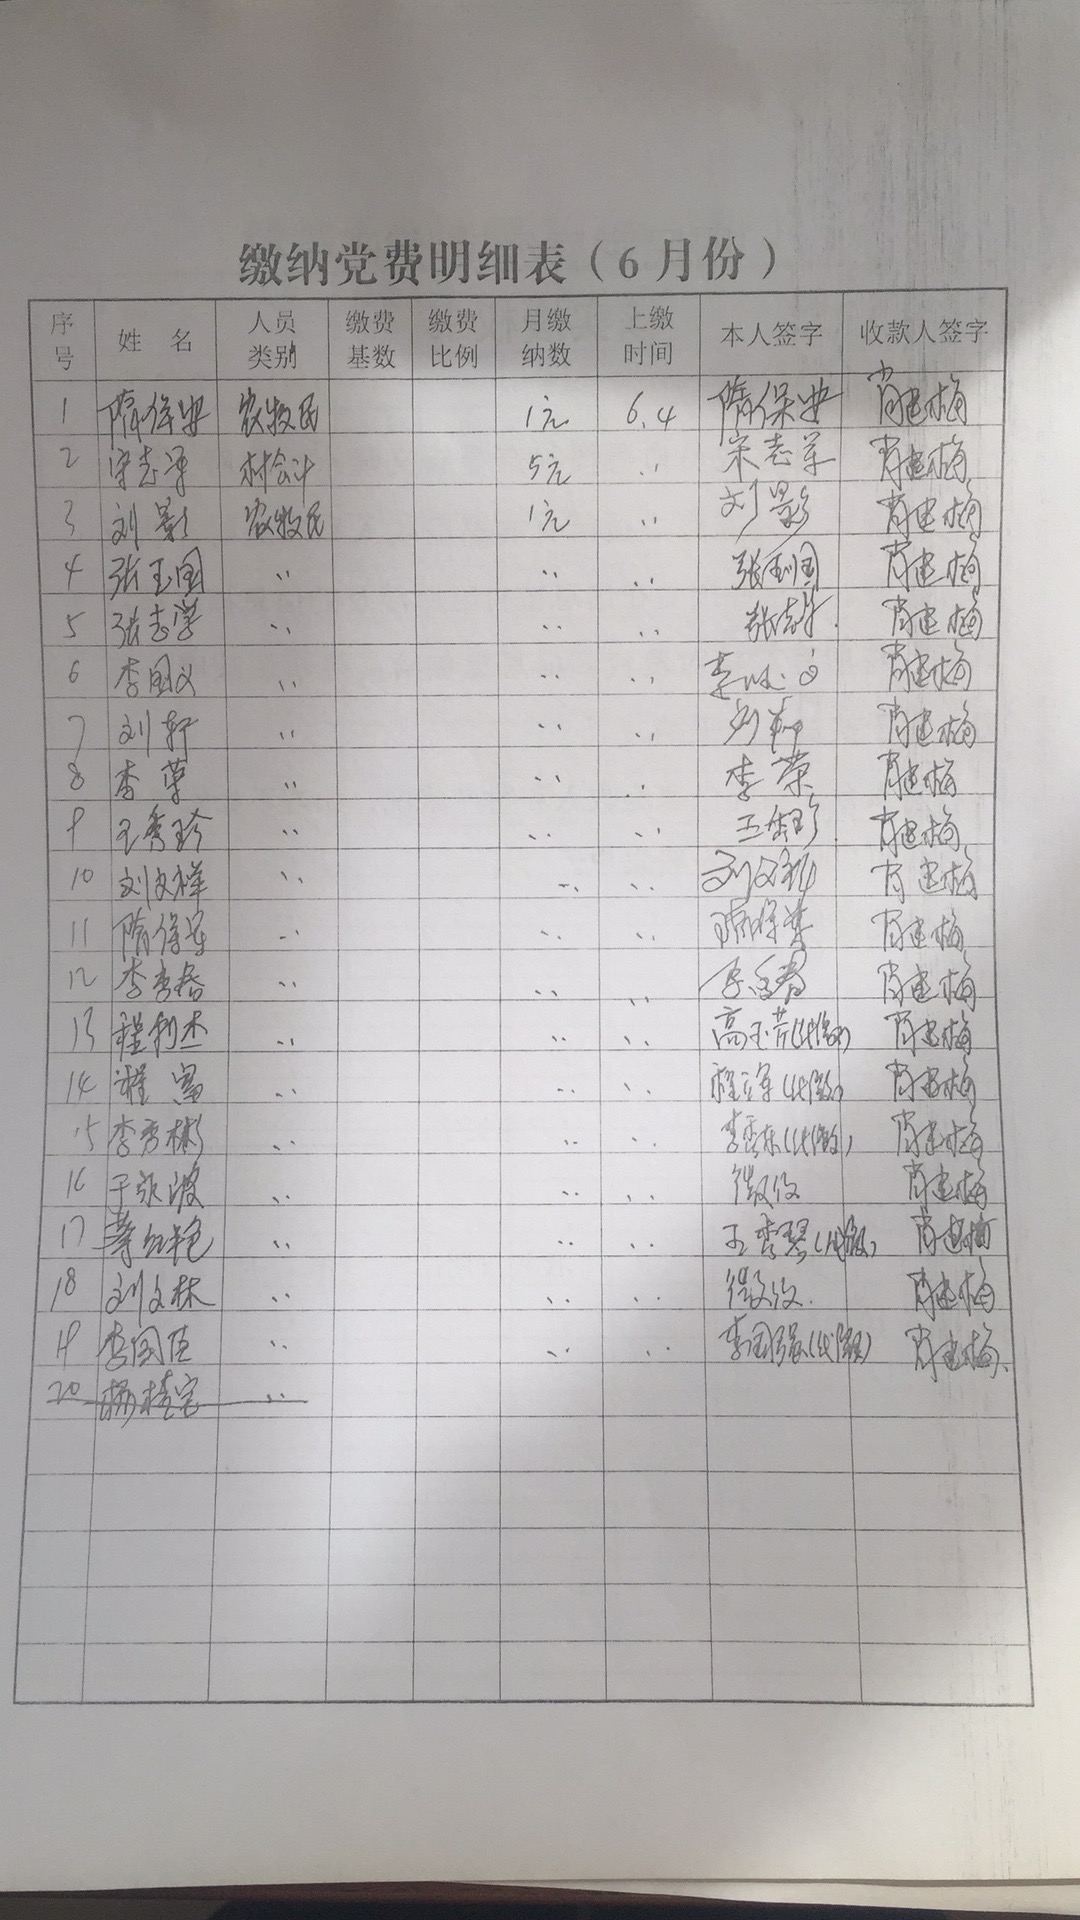 缴纳党费明细表（6月份）
序号 姓 名 人员类别 缴费基数 缴费比例 月缴纳数 上缴时间 本人签字 收款人签字
1 隋保安 农牧民 1元 6.4 隋保安 肖建梅
2 宋志军 村会计 5元 〃 宋志军 肖建梅
3 刘影 农牧民 1元 〃 刘影 肖建梅
4 张玉国 〃 〃 〃 张玉国 肖建梅
5 张志学 〃 〃 〃 张志学 肖建梅
6 李国义 〃 〃 〃 肖建梅
7 刘轩 〃 〃 〃 刘轩 肖建梅
8 李荣 〃 〃 〃 李荣 肖建梅
9 王秀珍 〃 〃 〃 王秀珍 肖建梅
10 刘文祥 〃 〃 〃 肖建梅
11 隋保军 〃 〃 〃 肖建梅
12 李秀春 〃 〃 〃 肖建梅
13 程利杰 〃 〃 〃 高玉芹(代缴) 肖建梅
14 程富 〃 〃 〃 程立军(代缴) 肖建梅
15 李秀彬 〃 〃 〃 李秀东(代缴) 肖建梅
16 〃 〃 〃 微收 肖建梅
17 〃 〃 〃 王秀琴(代缴) 肖建梅
18 刘文林 〃 〃 〃 微收 肖建梅
19 李国臣 〃 〃 〃 李国强(代缴) 肖建梅
20 〃